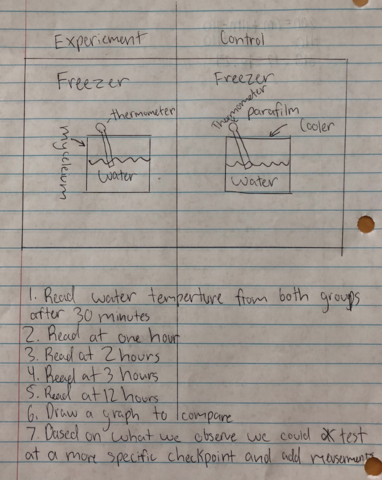 Experiement
Control
Freezer
Freezer
thermometer
mycleium
water
Thermometer
parafilm
Cooler
water
1. Read water temperture from both groups
after 30 minutes
2. Read at one hour
3. Read at 2 hours
4. Read at 3 hours
5. Read at 12 hours
6. Draw a graph to compare
7. Based on what we observe we could test
at a more specific checkpoint and add measurments